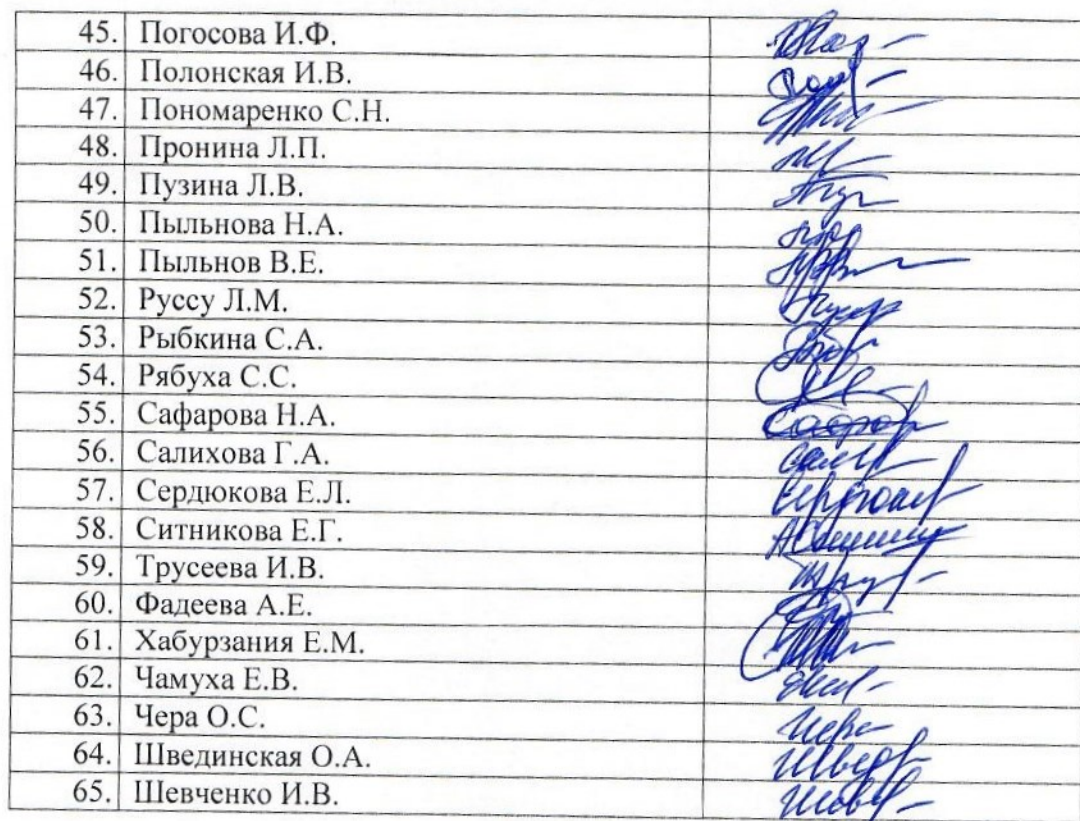 45. Погосова И.Ф.
46. Полонская И.В.
47. Пономаренко С.Н.
48. Пронина Л.П.
49. Пузина Л.В.
50. Пыльнова Н.А.
51. Пыльнов В.Е.
52. Руссу Л.М.
53. Рыбкина С.А.
54. Рябуха С.С.
55. Сафарова Н.А.
56. Салихова Г.А.
57. Сердюкова Е.Л.
58. Ситникова Е.Г.
59. Трусеева И.В.
60. Фадеева А.Е.
61. Хабурзания Е.М.
62. Чамуха Е.В.
63. Чера О.С.
64. Швединская О.А.
65. Шевченко И.В.